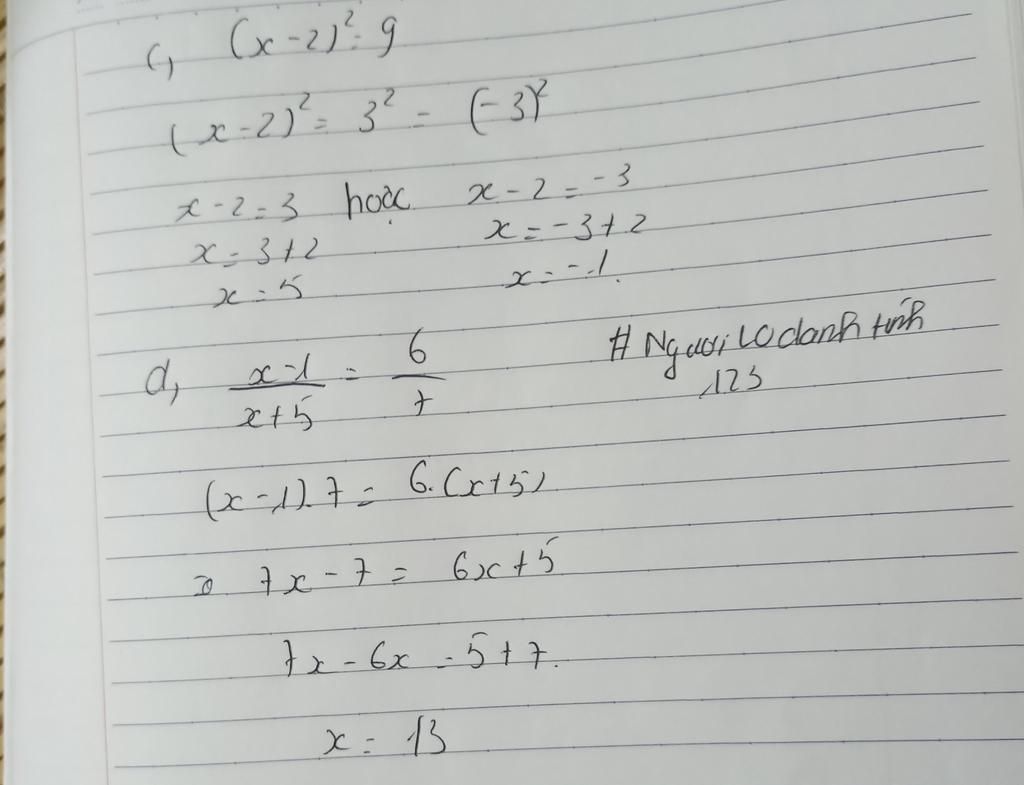 c, (x-2)² = 9
(x-2)² = 3² = (-3)²
x-2=3 hoặc x-2=-3
x=3+2 x=-3+2
x=5 x=-1.
d, \frac{x-1}{x+5} = \frac{6}{7}
# Người lộ danh tính
123
(x-1).7 = 6.(x+5)
7x-7 = 6x+5
7x-6x = 5+7.
x = 13